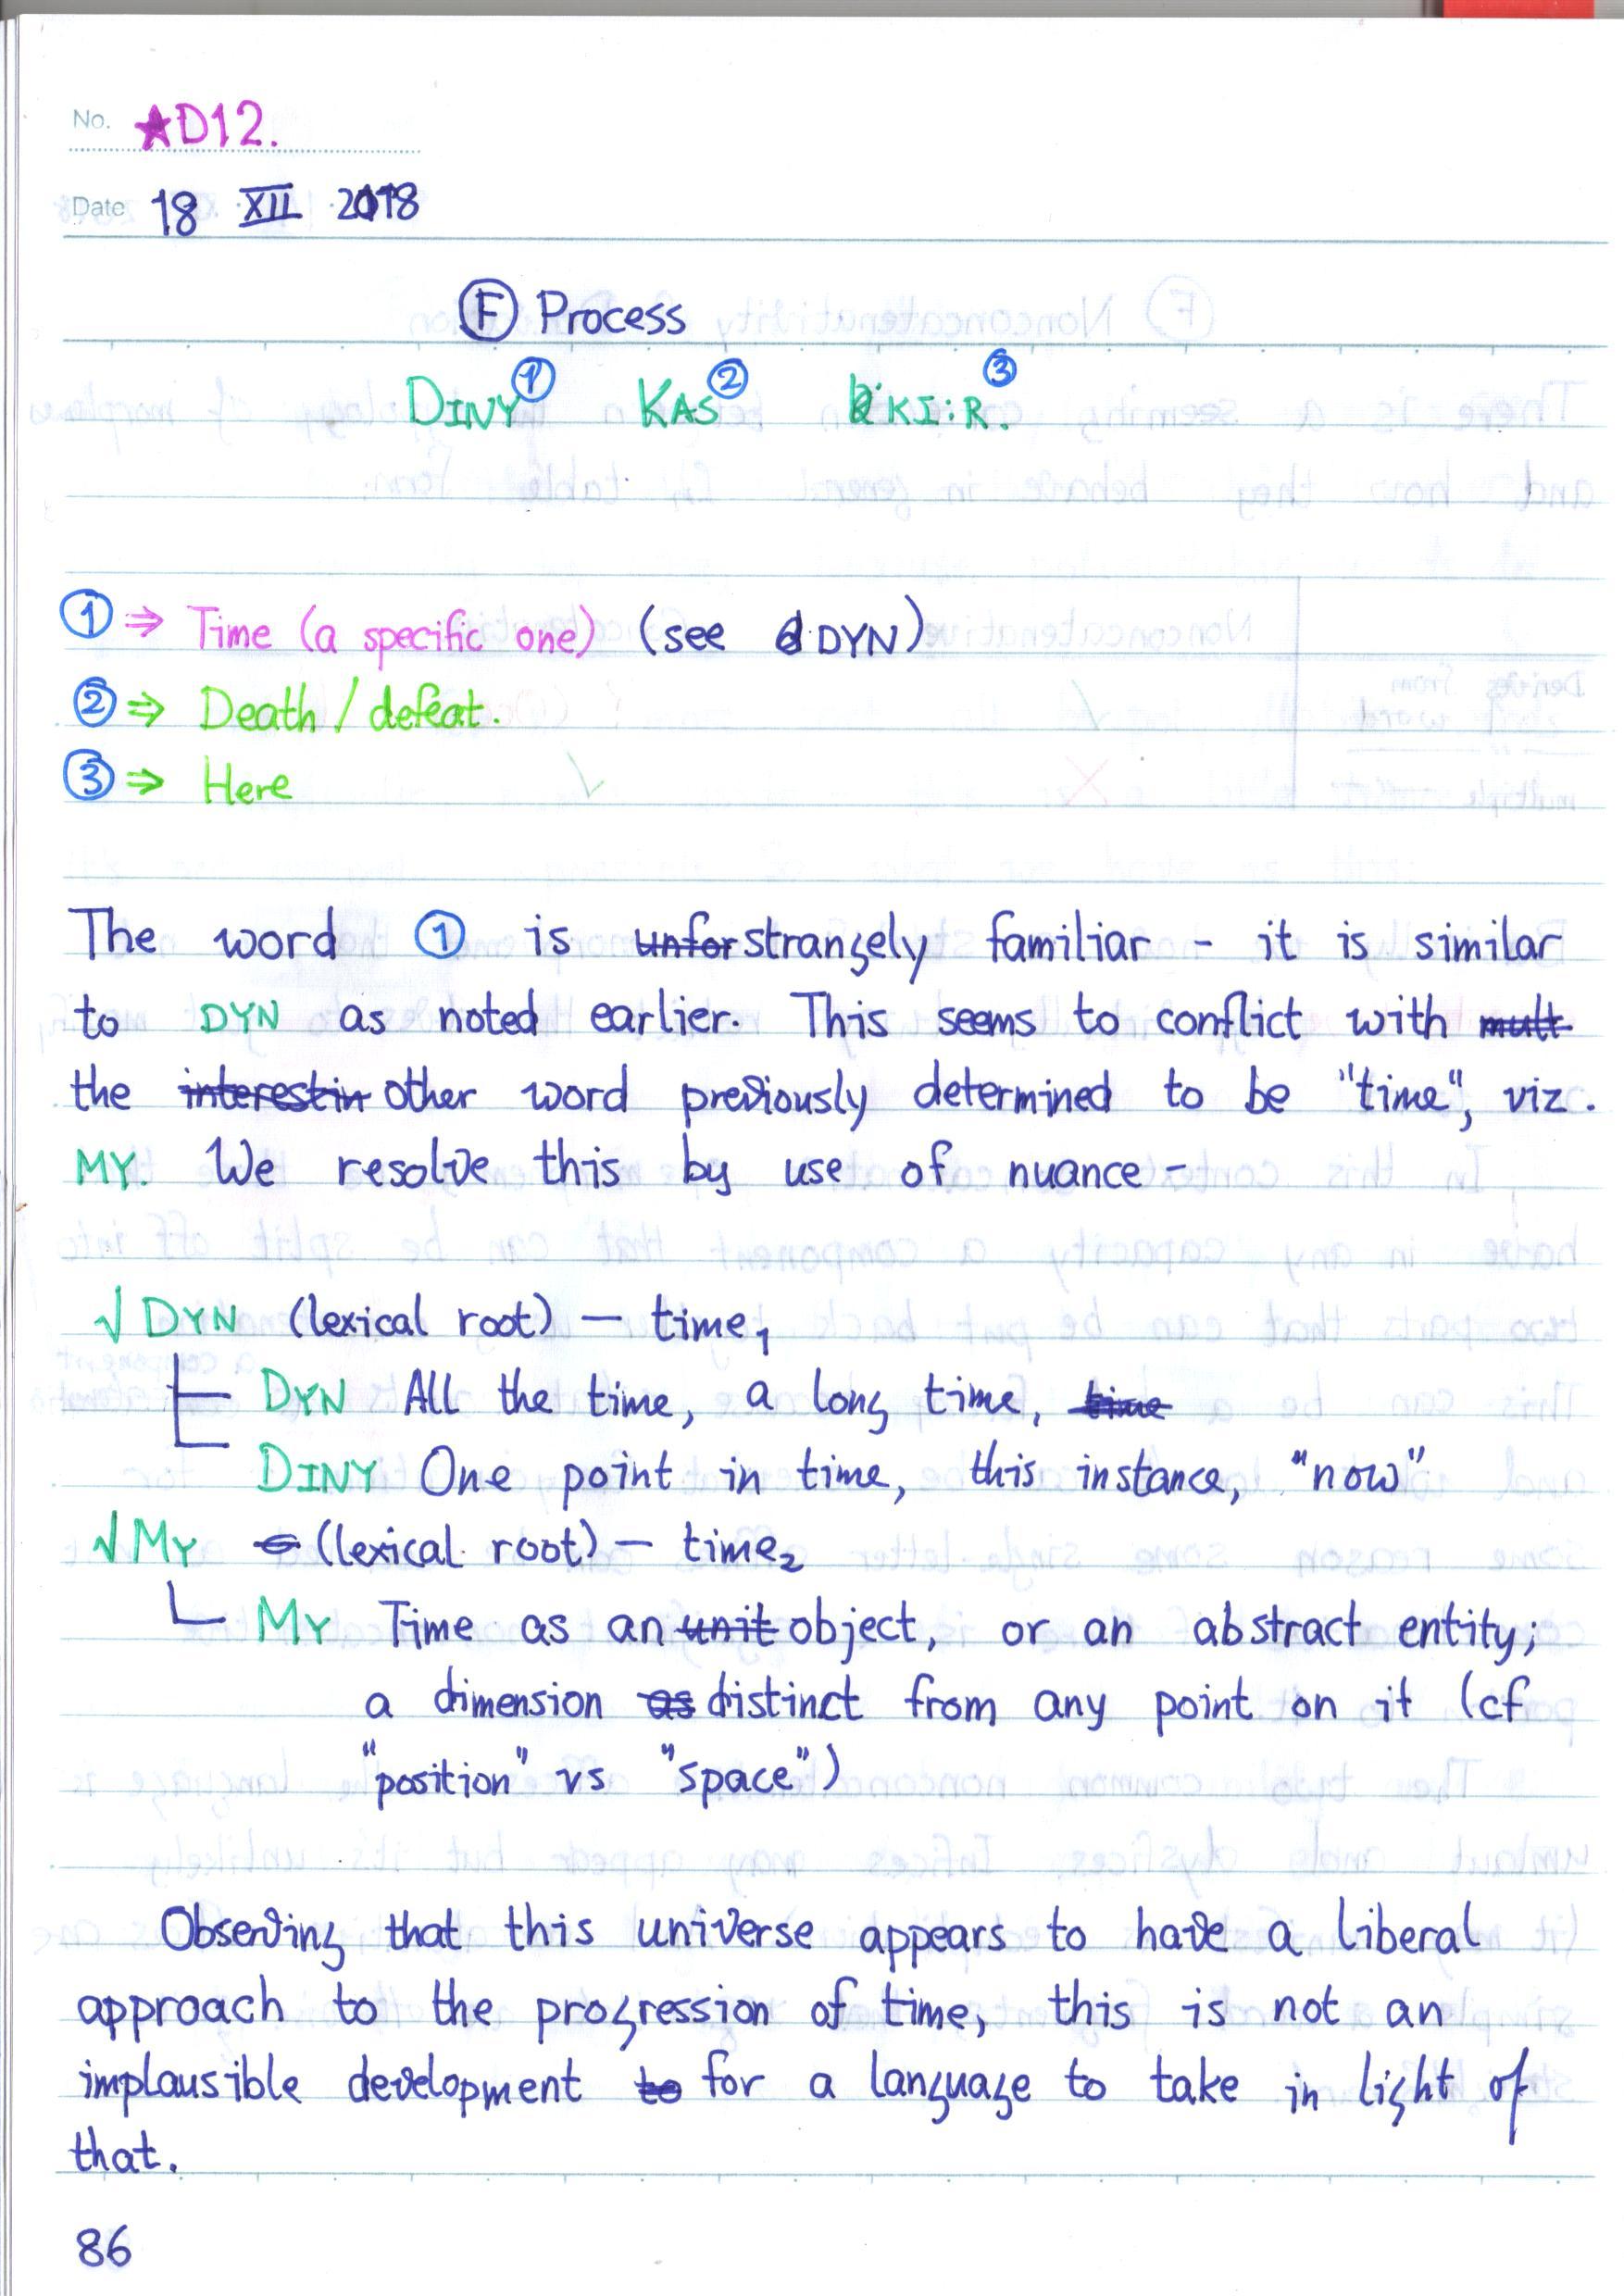 No. ★D12.
Date 18 XII 2018
Ⓕ Process
DINY① KAS② KI:R.③
① ⇒ Time (a specific one) (see DYN)
② ⇒ Death / defeat.
③ ⇒ Here
The word ① is unfor strangely familiar - it is similar
to DYN as noted earlier. This seems to conflict with mult
the interestin other word previously determined to be "time", viz.
MY. We resolve this by use of nuance -
√DYN (lexical root) — time₁
DYN All the time, a long time, time
DINY One point in time, this instance, "now"
√MY (lexical root) — time₂
MY Time as an unit object, or an abstract entity;
a dimension as distinct from any point on it (cf
"position" vs "space")
Observing that this universe appears to have a liberal
approach to the progression of time, this is not an
implausible development to for a language to take in light of
that.
86